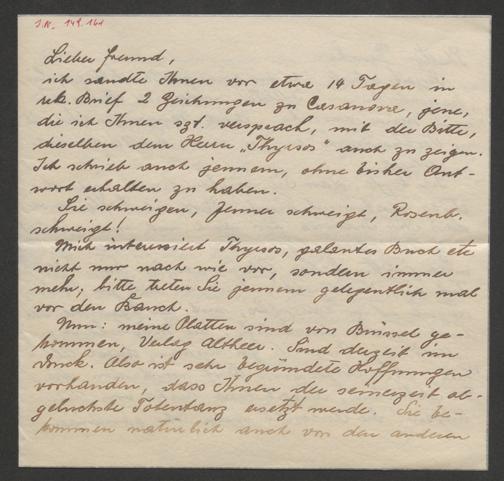 J.N. 149.161
Lieber Freund,
ich sandte Ihnen vor etwa 14 Tagen in
rek. Brief 2 Zeichnungen zu Casanova, jene,
die ich Ihnen szt. versprach, mit der Bitte,
dieselben dem Herrn „Thyrsos" auch zu zeigen.
Ich schrieb auch jennem, ohne bisher Ant-
wort erhalten zu haben.
Sie schweigen, Jenner schweigt, Rosenb.
schweigt!
Mich interessiert Thyrsos, galantes Buch etc
nicht nur nach wie vor, sondern immer
mehr, bitte treten Sie jennem gelegentlich mal
vor den Bauch.
Nun: meine Platten sind von Brüssel ge-
kommen, Verlag Altheer. Sind derzeit im
Druck. Also ist sehr begründete Hoffnungen
vorhanden, dass Ihnen der seinerzeit ab-
geluchste Totentanz ersetzt werde. Sie be-
kommen natürlich auch von den anderen